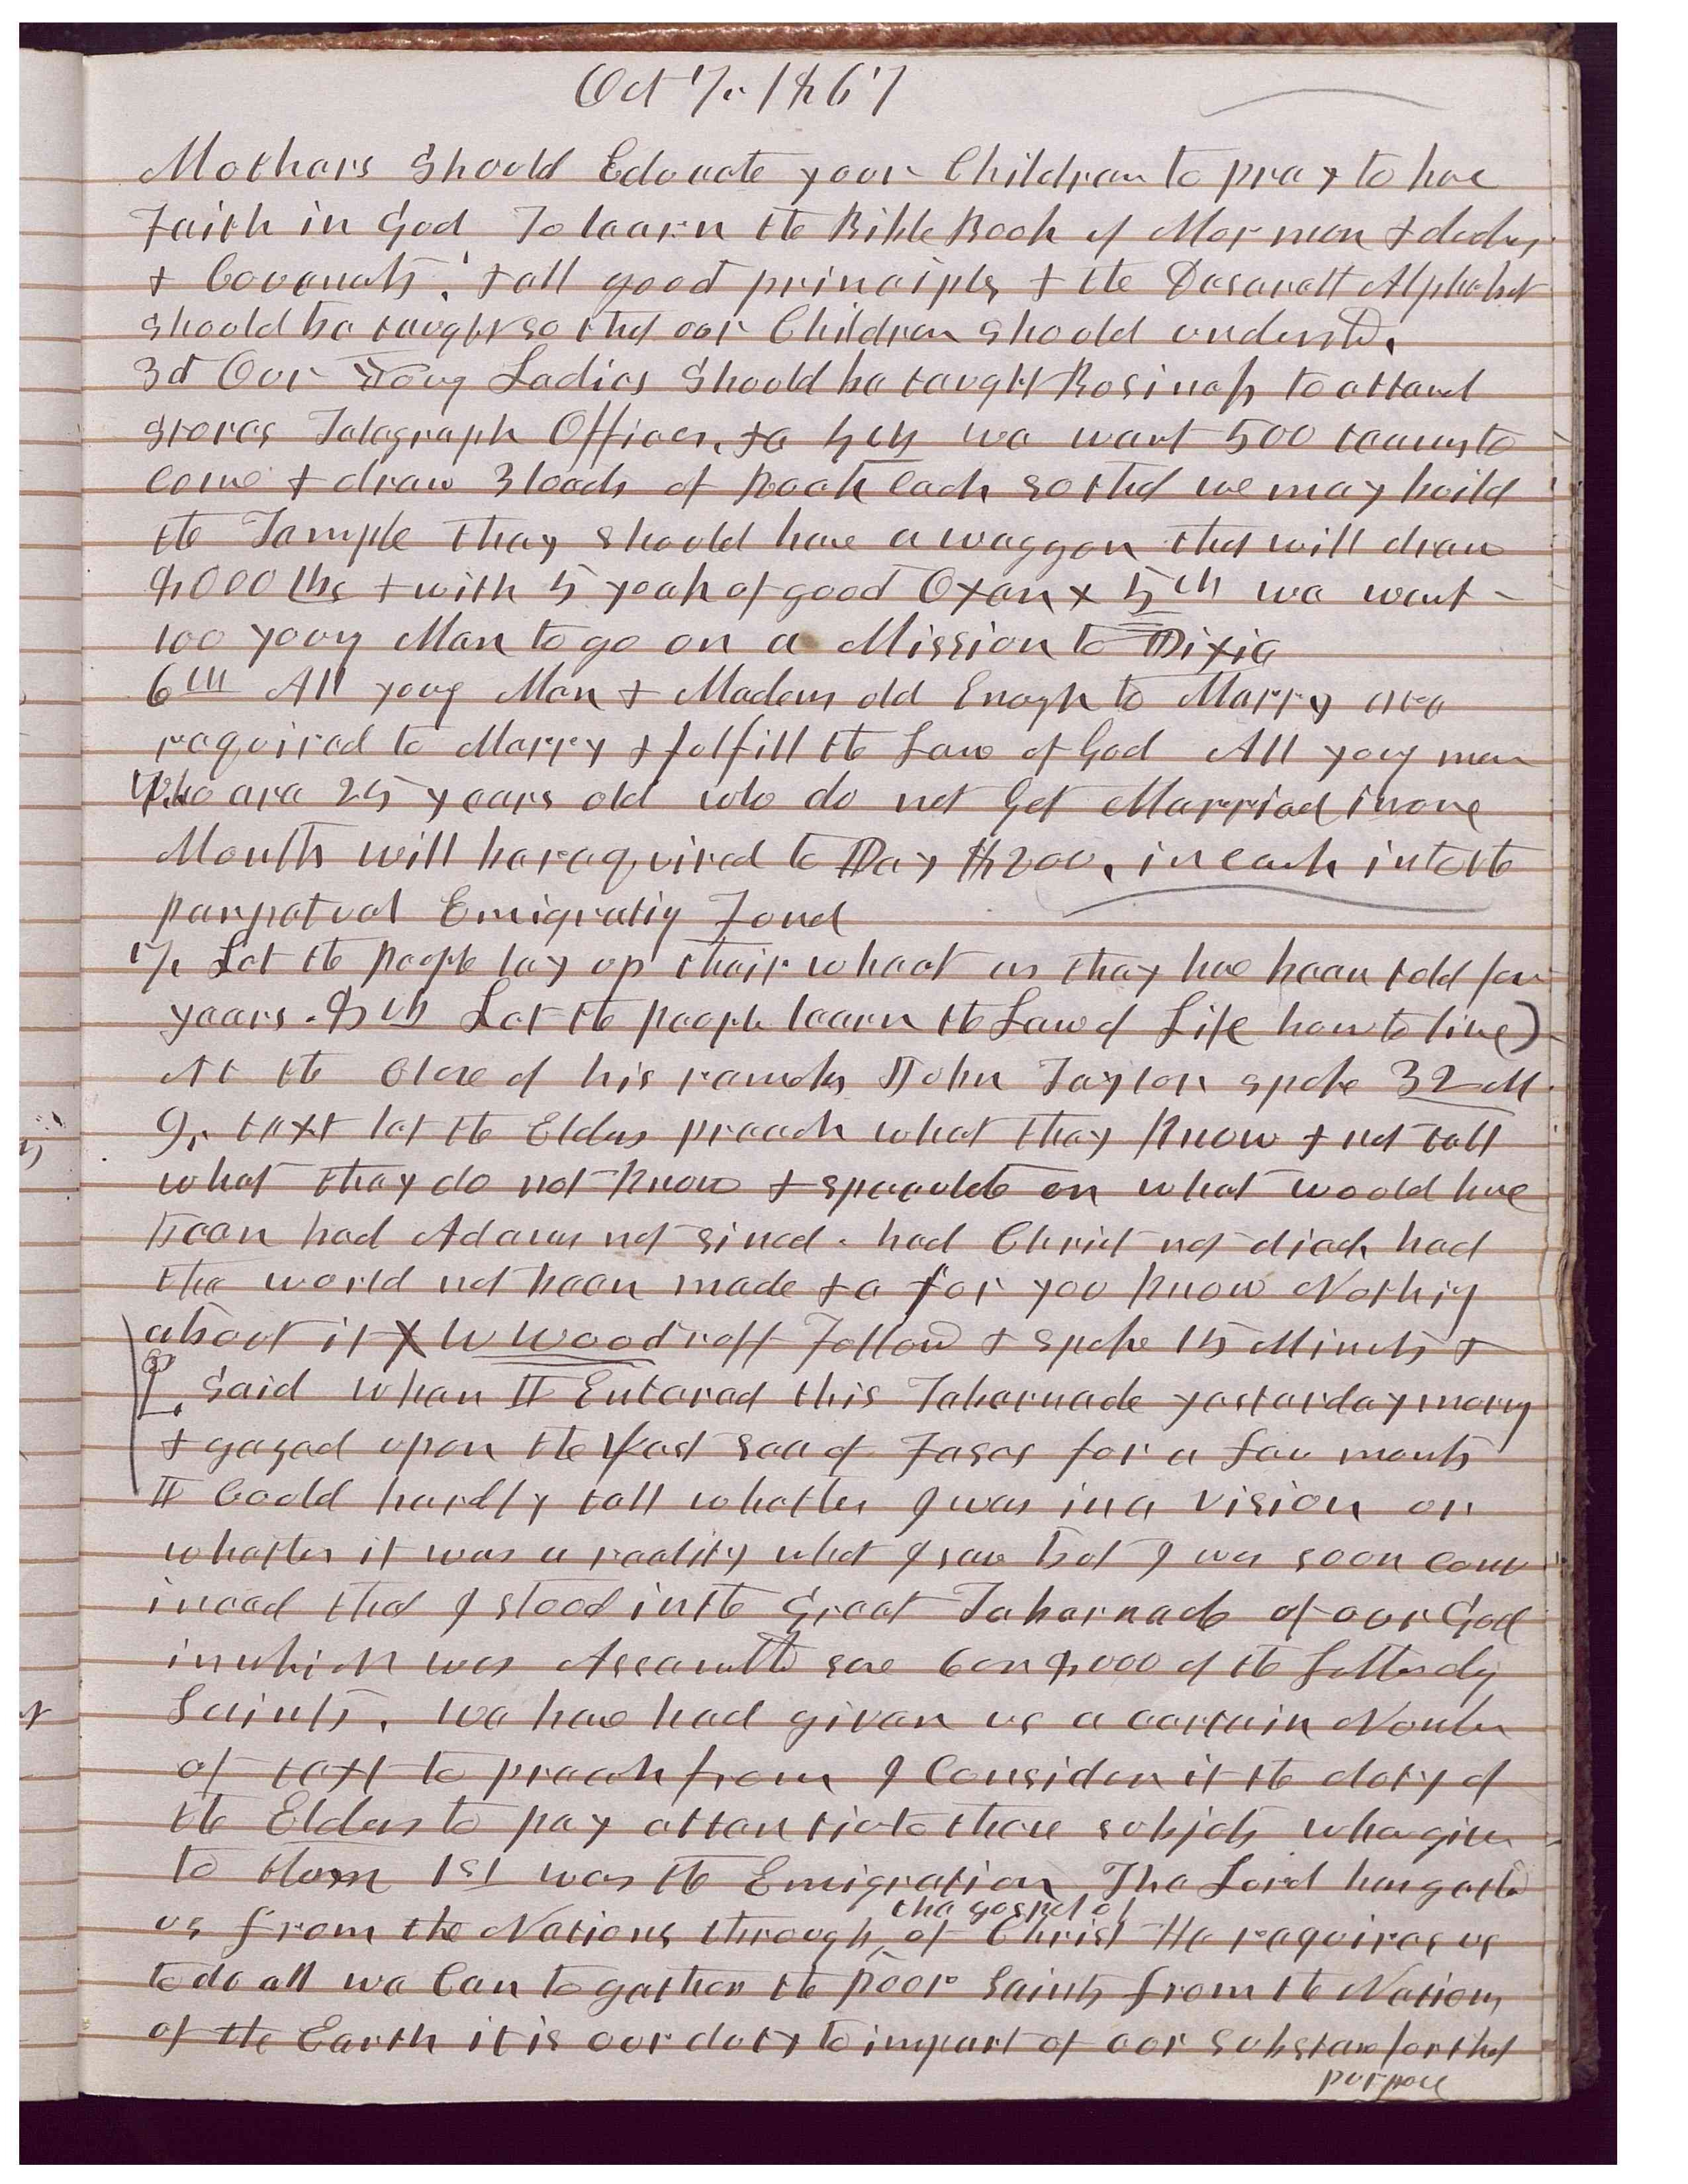 Oct 7, 1867
Mothers should Educate your Children to pray to have
Faith in God To learn the Bible Book of Mormon & doctrins
& Covenants, & all good principls & the Deserett Alphabet
should be taught so that our Children should understd.
3d Our Young Ladies should be taught Business to attend
stores Telegraph Offices, &c 4th we want 500 teams to
come & draw 3 loads of Rock each so that we may build
the Temple they should have a waggon that will draw
8,000 lbs & with 5 yoak of good Oxen & 5th we want
100 young Men to go on a Mission to Dixie
6th All young Men & Madens old Enough to Marry are
required to Marry & fulfill the Law of God All young men
who are 25 years old who do not Get Married in one
Month will be required to Pay $200, in cash into the
perpetual Emigrating Fund
7, Let the people lay up their wheat as they have been told for
years. 8th Let the people learn the Law of Life how to live)
At the close of his remarks John Taylor spoke 32 M
9, text let the Elders preach what they know & not tell
what they do not know & speculate on what would have
been had Adam not sined. had Christ not died, had
the world not been made &c for you know Nothing
about it X W Woodruff Followd & spoke 15 Minuts &
said when I Entered this Tabernacle yesterday morng
& gazed upon the vast sea of Faces for a few moments
I Could hardly tell whether I was in a vision or
whether it was a reality what I saw but I was soon conv
inced that I stood in the Great Tabernacle of our God
in which was Assembled some 6 or 8,000 of the Latterday
Saints. We have had given us a certain Number
of text to preach from I Consider it the duty of
the Elders to pay attention to those subjets when given
to them 1st was the Emigration The Lord has gatherd
us from the Nations through the gospel of of Christ He requires us
to do all we Can to gather the poor Saints from the Nations
of the Earth it is our duty to impart of our substance for that
purpose